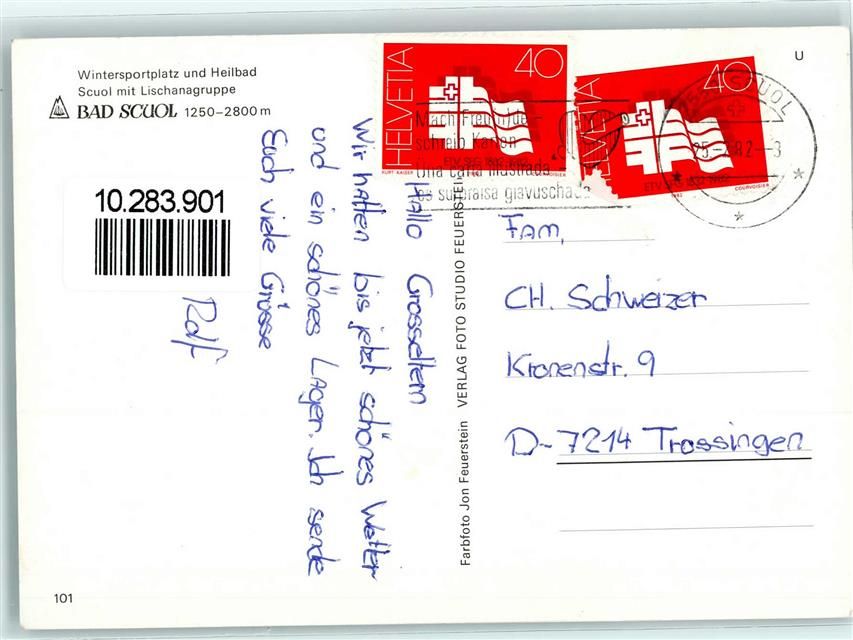 Wintersportplatz und Heilbad
Scuol mit Lischanagruppe
BAD SCUOL 1250–2800 m
10.283.901
Hallo Grosseltern
Wir hatten bis jetzt schönes Wetter
und ein schönes Lager. Ich sende
Euch viele Grüsse
Rolf
101
Farbfoto Jon Feuerstein VERLAG FOTO STUDIO FEUERSTEIN
U
HELVETIA 40
KURT KAISER
COURVOISIER
HELVETIA 40
ETV SFG 1832-1982
COURVOISIER
Mach Freunde
schreib Karten
Una carta illustrada
es surpraisa giavuschada
SCUOL
82
Fam.
CH. Schweizer
Kronenstr. 9
D-7214 Trossingen